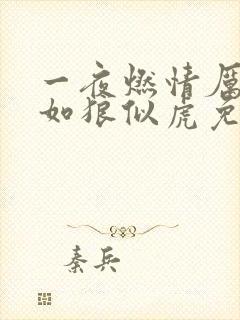 一夜燃情厉
如狼似虎免
秦兵